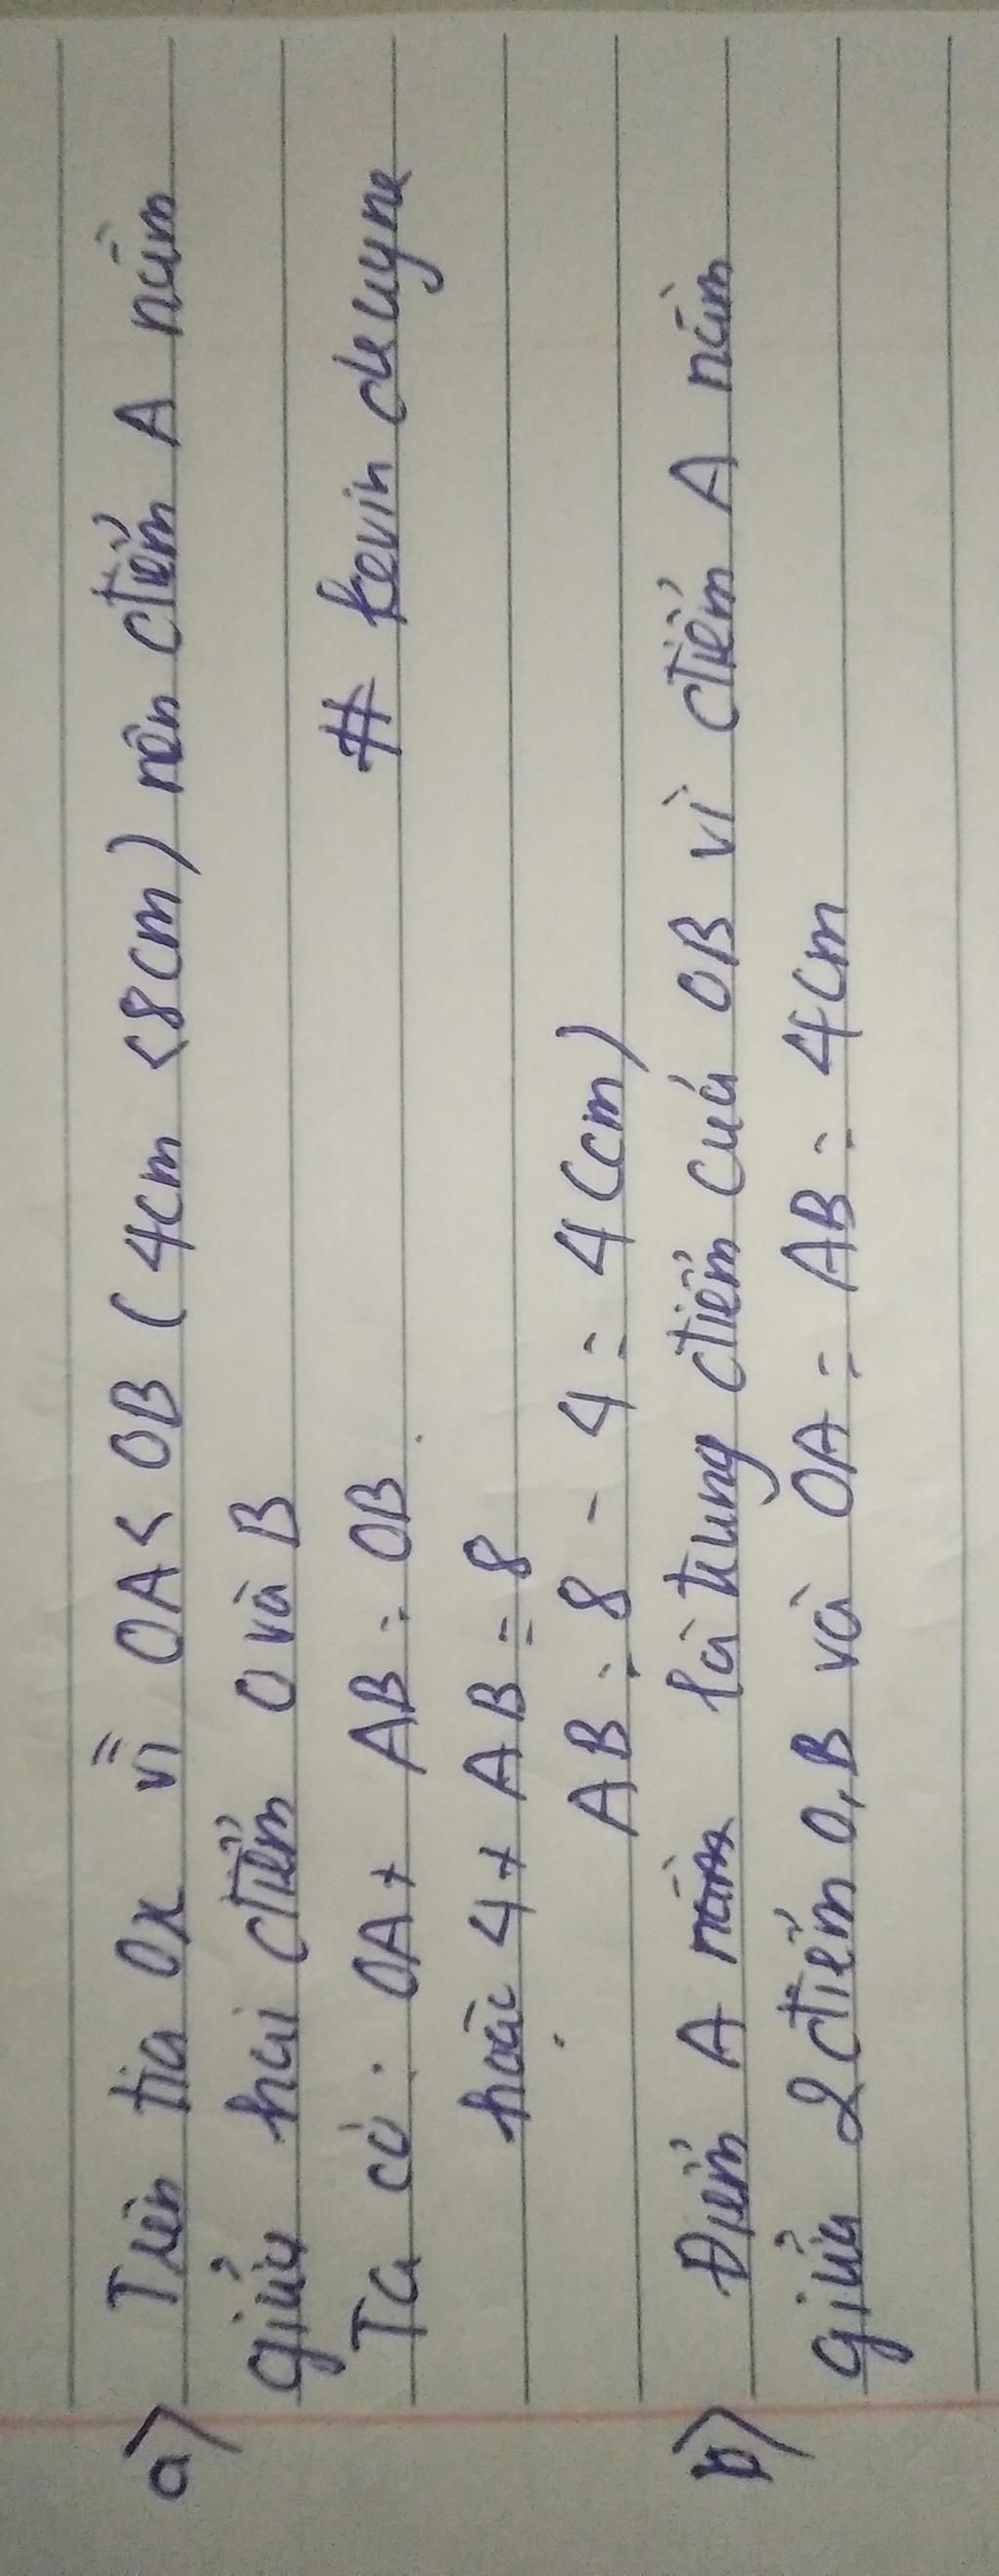 a) Trên tia Ox vì OA < OB ( 4cm < 8cm ) nên điểm A nằm
giữa hai điểm O và B
# kevin deuyne
Ta có : OA + AB = OB
hoặc 4 + AB = 8
AB = 8 - 4 = 4 (cm)
b) Điểm A là trung điểm của OB vì điểm A nằm
giữa 2 điểm O, B và OA = AB = 4cm